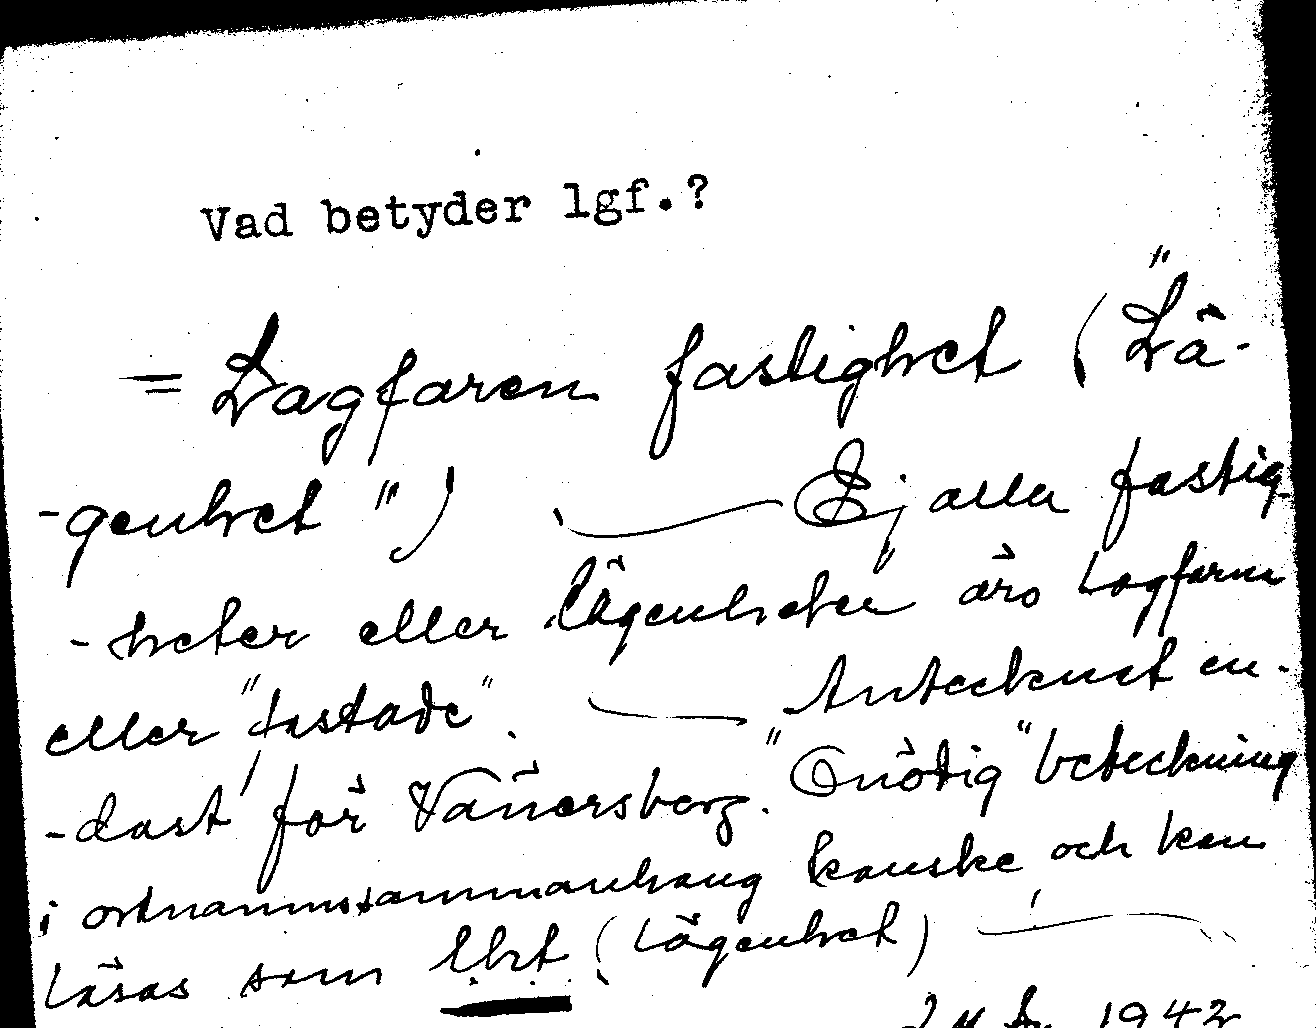 Vad betyder lgf.?
= Lagfaren fastighet ("Lä-
-genhet") Ej alla fastig-
-heter eller lägenheter äro lagfarna
eller "fastade". Antecknat en-
-dast för Vänersborg. "Onödig" beteckning
i ortnamnssammanhang kanske och kan
läsas som lht (lägenhet)
1942